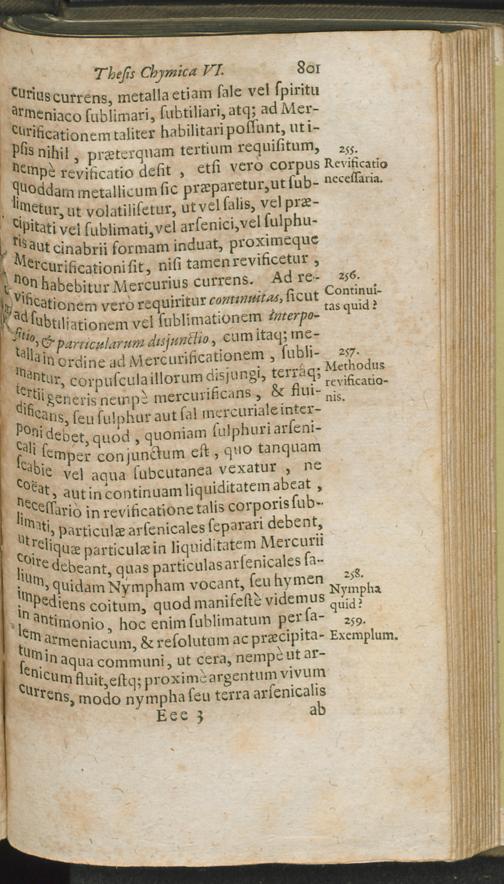 Thesis Chymica VI. 801
curius currens, metalla etiam sale vel spiritu
armeniaco sublimari, subtiliari, atq; ad Mer-
curificationem taliter habilitari possunt, ut i-
psis nihil, præterquam tertium requisitum,
nempè revificatio desit, etsi verò corpus
quoddam metallicum sic præparetur, ut sub-
limetur, ut volatilisetur, ut vel salis, vel præ-
cipitati vel sublimati, vel arsenici, vel sulphu-
ris aut cinabrii formam induat, proximeque
Mercurificationi sit, nisi tamen revificetur,
non habebitur Mercurius currens. Ad re-
vificationem verò requiritur continuitas, sicut
ad subtiliationem vel sublimationem interpo-
sitio, & particularum disjunctio, cum itaq; me-
talla in ordine ad Mercurificationem, subli-
mantur, corpuscula illorum disjungi, terráq;
tertii generis nempè mercurificans, & flui-
dificans, seu sulphur aut sal mercuriale inter-
poni debet, quod, quoniam sulphuri arseni-
cali semper conjunctum est, quo tanquam
scabie vel aqua subcutanea vexatur, ne
coëat, aut in continuam liquiditatem abeat,
necessariò in revificatione talis corporis sub-
limati, particulæ arsenicales separari debent,
ut reliquæ particulæ in liquiditatem Mercurii
coire debeant, quas particulas arsenicales sa-
lium, quidam Nympham vocant, seu hymen
impediens coitum, quod manifestè videmus
in antimonio, hoc enim sublimatum per sa-
lem armeniacum, & resolutum ac præcipita-
tum in aqua communi, ut cera, nempè ut ar-
senicum fluit, estq; proximè argentum vivum
currens, modo nympha seu terra arsenicalis
Eee 3 ab
255.
Revificatio
necessaria.
256.
Continui-
tas quid?
257.
Methodus
revificatio-
nis.
258.
Nympha
quid?
259.
Exemplum.